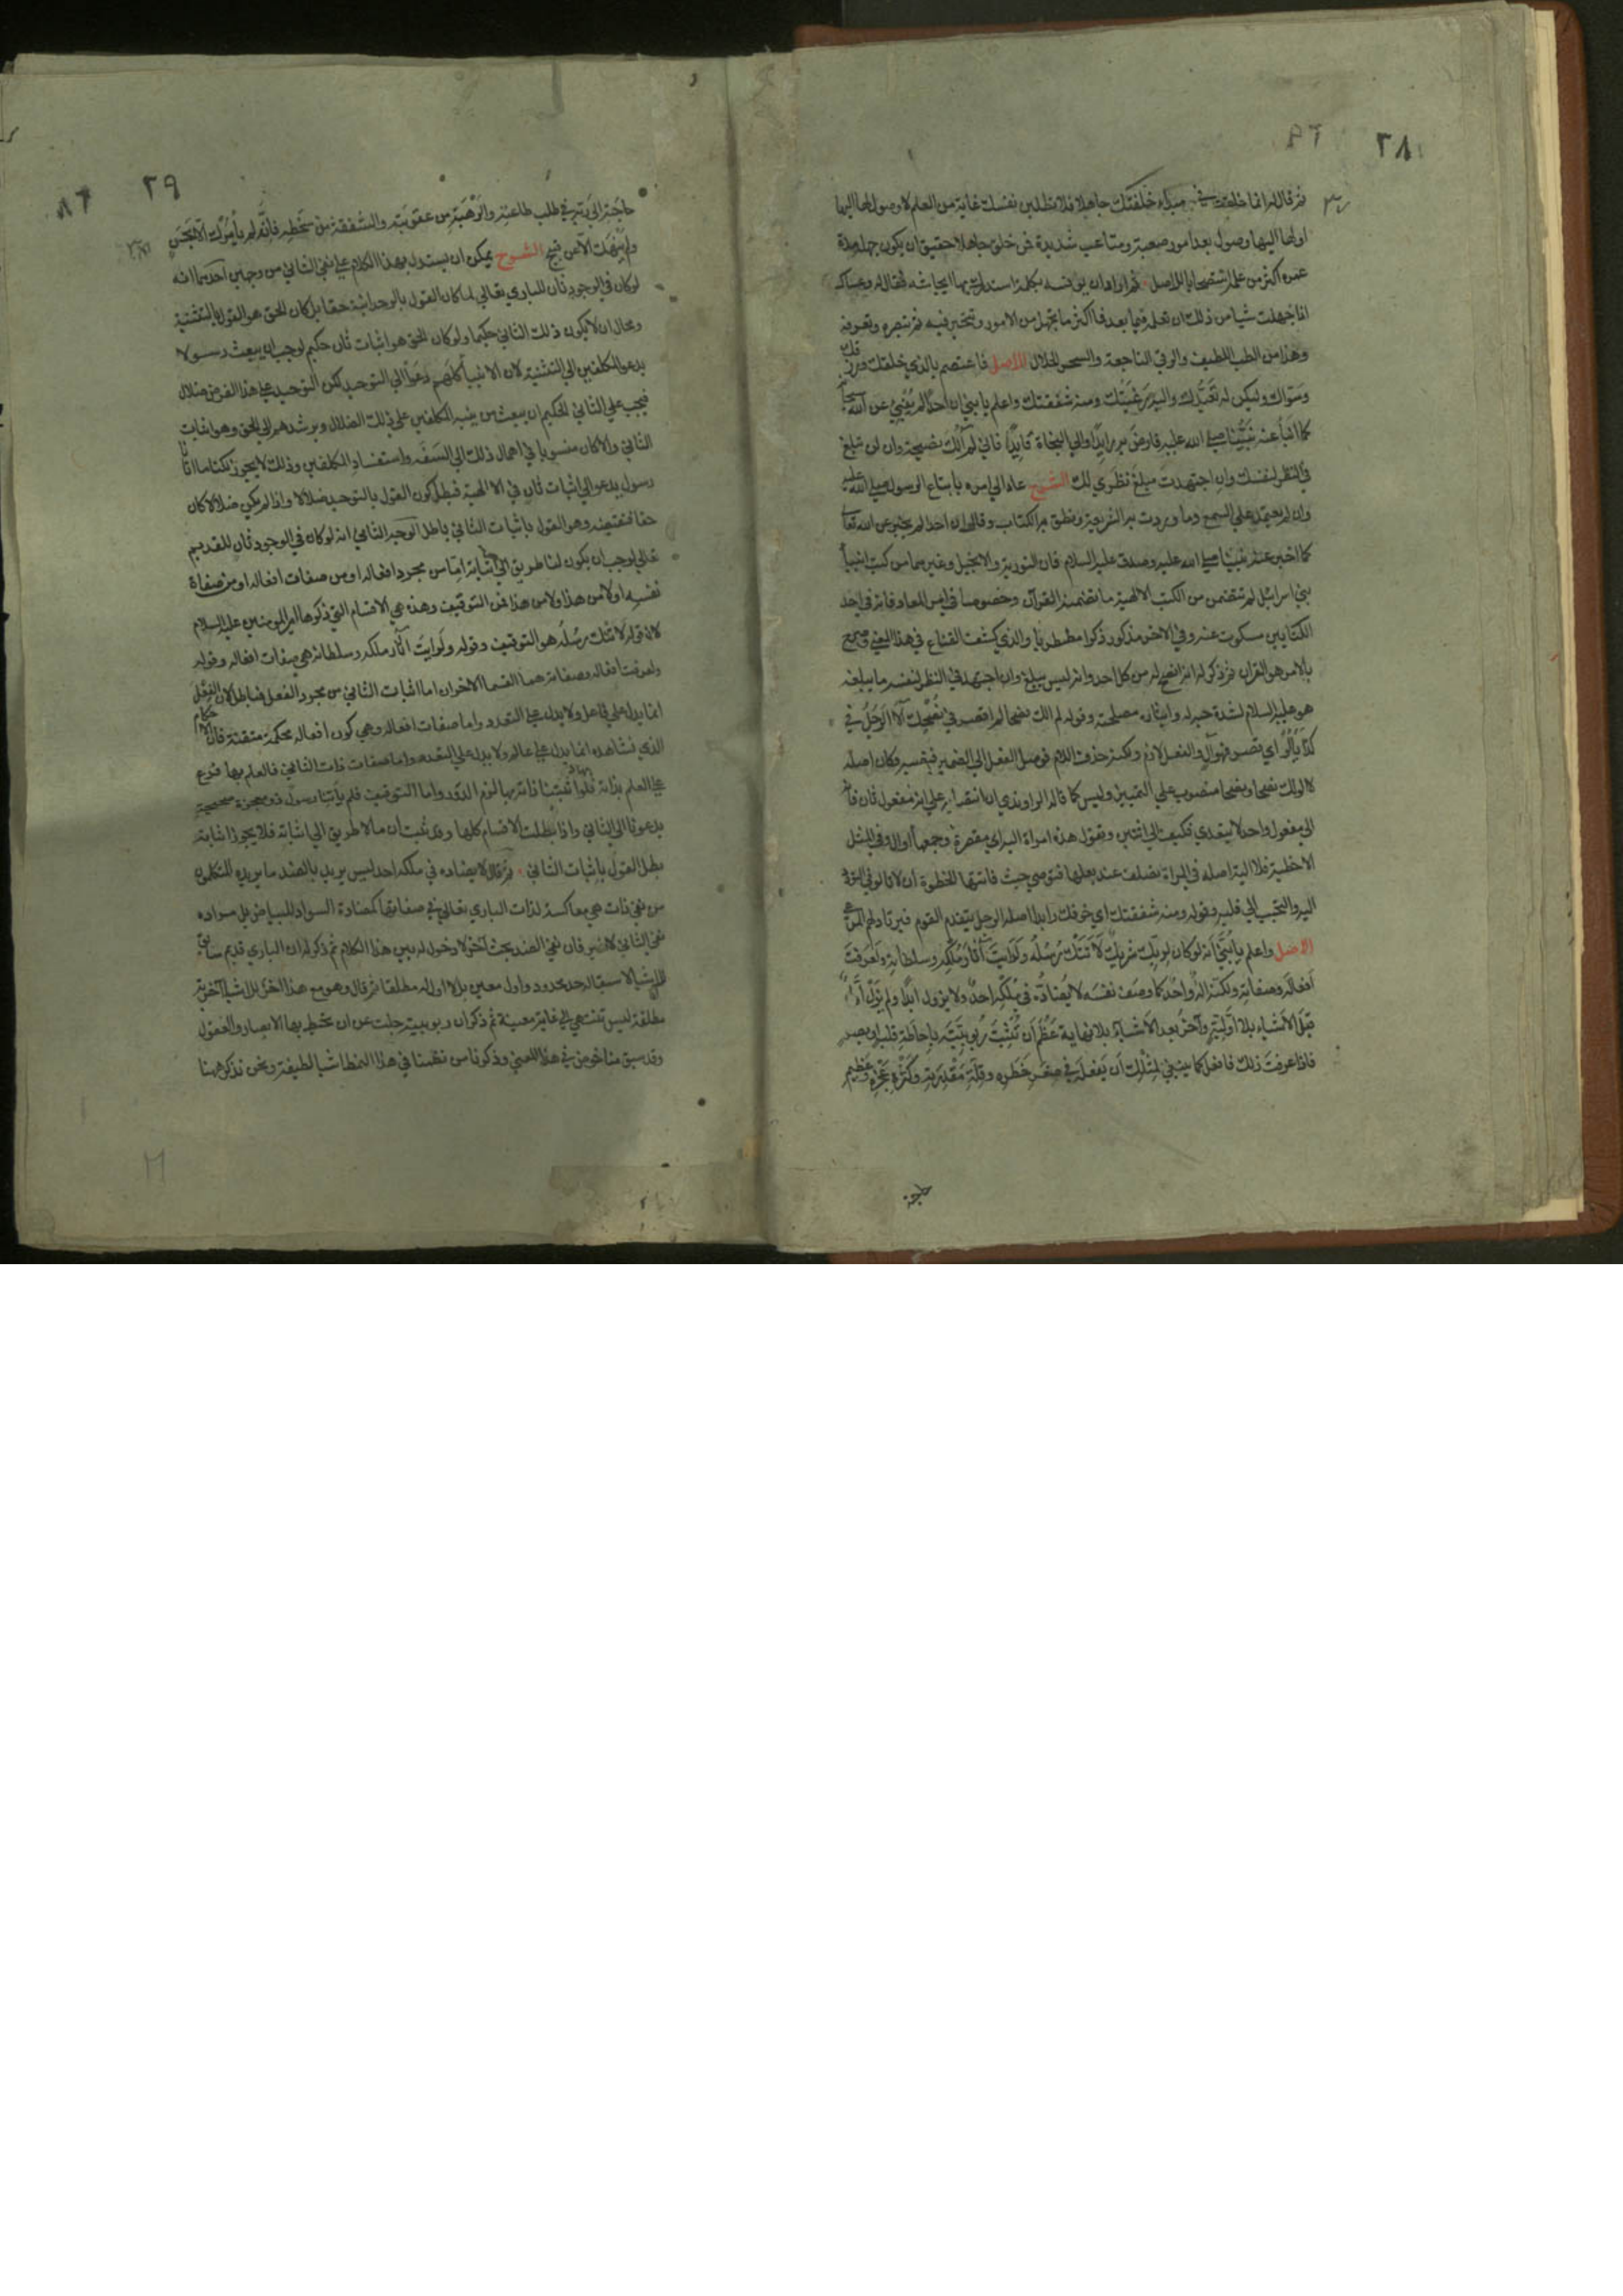 ٢٨
ثم قال له انما خلقت في مبداء خلقتك جاهلا فلا تطلبن نفسك غاية من العلم لا وصول لها اليها
او لها اليها وصول بعد امور صعبة ومتاعب شديدة فمن خلق جاهلا حقيق ان يكون جهله مدة
عمره اكثر من علمه استصحابا للاصل ثم اراد ان يونسه بكلمة استدرك بها ايحاشه فقال له وعساك
اذا جهلت شيا من ذلك ان تعلمه فيما بعد فما اكثر ما تجهل من الامور وتتحير فيه ثم تبصره وتعرفه
وهذا من الطب اللطيف والرقى الناجعة والسحر الحلال الاصل فاعتصم بالذي خلقك ورزقك
وسواك وليكن له تعبدك واليه رغبتك ومنه شفقتك واعلم يا بني ان احدا لم ينبئ عن الله سبحانه
كما انبأ عنه نبينا صلى الله عليه فارض به رايدا والى النجاة قايدا فاني لم آلك نصيحة وان لن تبلغ
في النظر لنفسك وان اجتهدت مبلغ نظري لك الشرح عاد الى امره باتباع الرسول صلى الله عليه
وان يعتمد على السمع وما وردت به الشريعة ونطق به الكتاب وقال له ان احدا لم يخبر عن الله تعالى
كما اخبر عنه نبينا صلى الله عليه وصدق عليه السلام فان التورية والانجيل وغيرهما من كتب انبيا
بني اسرائيل لم تتضمن من الكتب الالهية ما تضمنه القرآن وخصوصا في امر المعاد فانه في احد
الكتابين مسكوت عنه وفي الاخر مذكور ذكرا مضطربا والذي كشف القناع في هذا المعنى وصرح
بالامر هو القرآن ثم ذكر له انه انصح له من كل احد وانه ليس يبلغ وان اجتهد في النظر لنفسه ما يبلغه
هو عليه السلام لشدة حبه له وايثاره مصلحته وقوله لم آلك نصحا لم اقصر في نصحك ألا الرجل في
كذا يألو اي قصر فهو آل والفعل لازم ولكنه حذف اللام فوصل الفعل الى الضمير فنصبه وكان اصله
لا آلو لك نصحا ونصحا منصوب على التمييز وليس كما قاله الراوندي ان انتصابه على انه مفعول ثان فانه
الى مفعول واحد لا يتعدى فكيف الى اثنين وتقول هذه امراة آلية اي مقصرة وجمعها اوال وفي المثل
الا حظية فلا الية اصله في المراة تصلف عند بعلها فتوصى حيث فاتتها الحظوة ان لا تالو في التودد
اليه والتحبب الى قلبه وقوله ومنه شفقتك اي خوفك ورايد اصله الرجل يتقدم القوم فيرتاد لهم المرعى
الاصل واعلم يا بني انه لو كان لربك شريك لاتتك رسله ولرايت آثار ملكه وسلطانه ولعرفت
افعاله وصفاته ولكنه اله واحد كما وصف نفسه لا يضاده في ملكه احد ولا يزول ابدا ولم يزل اول
قبل الاشياء بلا اولية وآخر بعد الاشياء بلا نهاية عظم ان تثبت ربوبيته باحاطة قلب او بصر
فاذا عرفت ذلك فافعل كما ينبغي لمثلك ان يفعله في صغر خطره وقلة مقدرته وكثرة عجزه وعظيم
حاجته
٢٩
حاجته الى ربه في طلب طاعته والرهبة من عقوبته والشفقة من سخطه فانه لم يأمرك الا بحسن
ولم ينهك الا عن قبيح الشرح يمكن ان يستدل بهذا الكلام على نفي الثاني من وجهين احدهما انه
لو كان في الوجود ثان للباري تعالى لما كان القول بالوحدانية حقا بل كان الحق هو القول بالتثنية
ومحال ان لا يكون ذلك الثاني حكيما ولو كان الحق هو اثبات ثان حكيم لوجب ان يبعث رسولا
يدعو المكلفين الى التثنية لان الانبيا كلهم دعوا الى التوحيد لكن التوحيد على هذا الفرض ضلال
فيجب على الثاني الحكيم ان يبعث من ينبه المكلفين على ذلك الضلال ويرشدهم الى الحق وهو اثبات
الثاني والا كان منسوبا في اهمال ذلك الى السفه واستفساد المكلفين وذلك لا يجوز لكنا ما اتانا
رسول يدعو الى اثبات ثان في الالهية فبطل كون القول بالتوحيد ضلالا واذا لم يكن ضلالا كان
حقا فنقيضه وهو القول باثبات الثاني باطل الوجه الثاني انه لو كان في الوجود ثان للقديم
تعالى لوجب ان يكون لنا طريق الى اثباته اما من مجرد افعاله او من صفات افعاله او من صفات
نفسه او لا من هذا ولا من هذا فمن التوقيف وهذه هي الاقسام التي ذكرها امير المومنين عليه السلام
لان قوله لاتتك رسله هو التوقيف وقوله ولرايت آثار ملكه وسلطانه هي صفات افعاله وقوله
ولعرفت افعاله وصفاته هما القسمان الاخران اما اثبات الثاني من مجرد الفعل فباطل لان الفعل
انما يدل على فاعل ولا يدل على التعدد واما صفات افعاله وهي كون افعاله محكمة متقنة فان الاحكام
الذي نشاهده انما يدل على عالم ولا يدل على التعدد واما صفات ذات الثاني فالعلم بها فرع
على العلم بذاته فلو اثبتنا ذاته بها لزم الدور واما التوقيف فلم يأتنا رسول ذو معجزة صحيحة
يدعونا الى الثاني واذا بطلت الاقسام كلها وقد ثبت ان ما لا طريق الى اثباته فلا يجوز اثباته
بطل القول باثبات الثاني ثم قال لا يضاده في ملكه احد ليس يريد بالضد ما يريده المتكلمون
من نفي ذات هي معاكسة لذات الباري تعالى في صفاتها كمضادة السواد للبياض بل مراده
نفي الثاني لا غير فان نفي الضد بحث آخر لا دخول له بين هذا الكلام ثم ذكر له ان الباري قديم سابق
للاشيا لا سبقا له حد محدود واول معين بل لا اول له مطلقا ثم قال وهو مع هذا آخر الاشيا آخرية
مطلقة ليس تنتهي الى غاية معينة ثم ذكر ان ربوبيته جلت عن ان تحيط بها الابصار والعقول
وقد سبق منا خوض في هذا المعنى وذكرنا من نظمنا في هذا النمط اشيا لطيفة ونحن نذكر ههنا